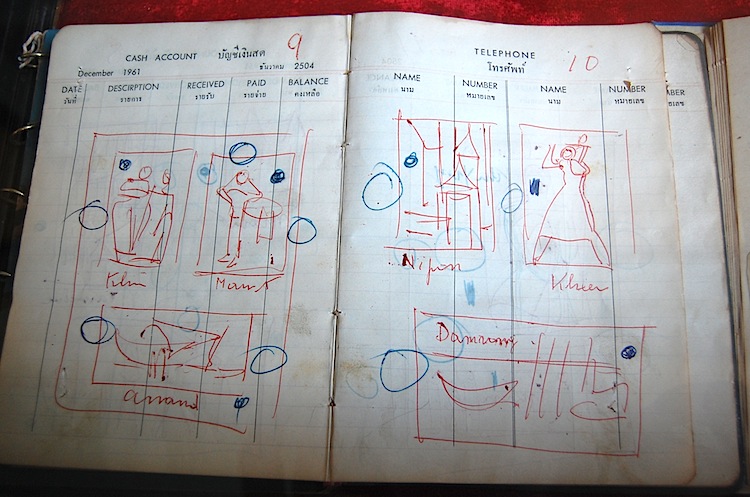 CASH ACCOUNT บัญชีเงินสด 9
December 1961 ธันวาคม 2504
DATE DESCIRPTION RECEIVED PAID BALANCE
วันที่ รายการ รายรับ รายจ่าย คงเหลือ
Khin Manit
anand
TELEPHONE
โทรศัพท์ 10
NAME NUMBER NAME NUMBER
นาม หมายเลข นาม หมายเลข
Nipon Khien
Damrong
MBER
ยเลข